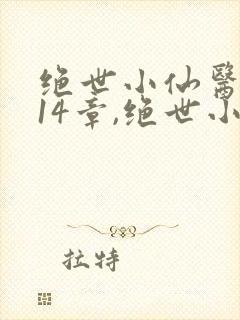 绝世小仙醫
14章,绝世小
拉特